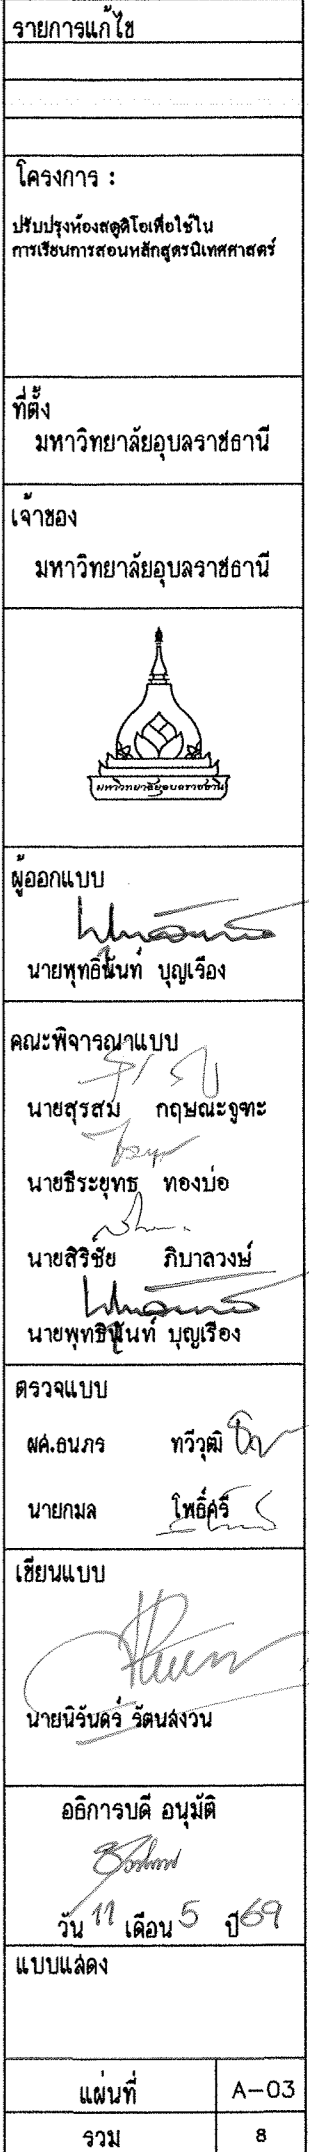 รายการแก้ไข
โครงการ :
ปรับปรุงห้องสตูดิโอเพื่อใช้ใน
การเรียนการสอนหลักสูตรนิเทศศาสตร์
ที่ตั้ง
มหาวิทยาลัยอุบลราชธานี
เจ้าของ
มหาวิทยาลัยอุบลราชธานี
มหาวิทยาลัยอุบลราชธานี
ผู้ออกแบบ
นายพุทธินันท์ บุญเรือง
คณะพิจารณาแบบ
นายสุรสม กฤษณะจูฑะ
นายธีระยุทธ ทองบ่อ
นายสิริชัย ภิบาลวงษ์
นายพุทธินันท์ บุญเรือง
ตรวจแบบ
ผศ.ธนภร ทวีวุฒิ
นายกมล โพธิ์ศรี
เขียนแบบ
นายนิรันดร์ รัตนสงวน
อธิการบดี อนุมัติ
วัน 11 เดือน 5 ปี 69
แบบแสดง
แผ่นที่ A-03
รวม 8